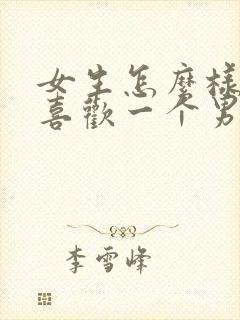 女生怎麼樣
喜歡一个男
李雪峰